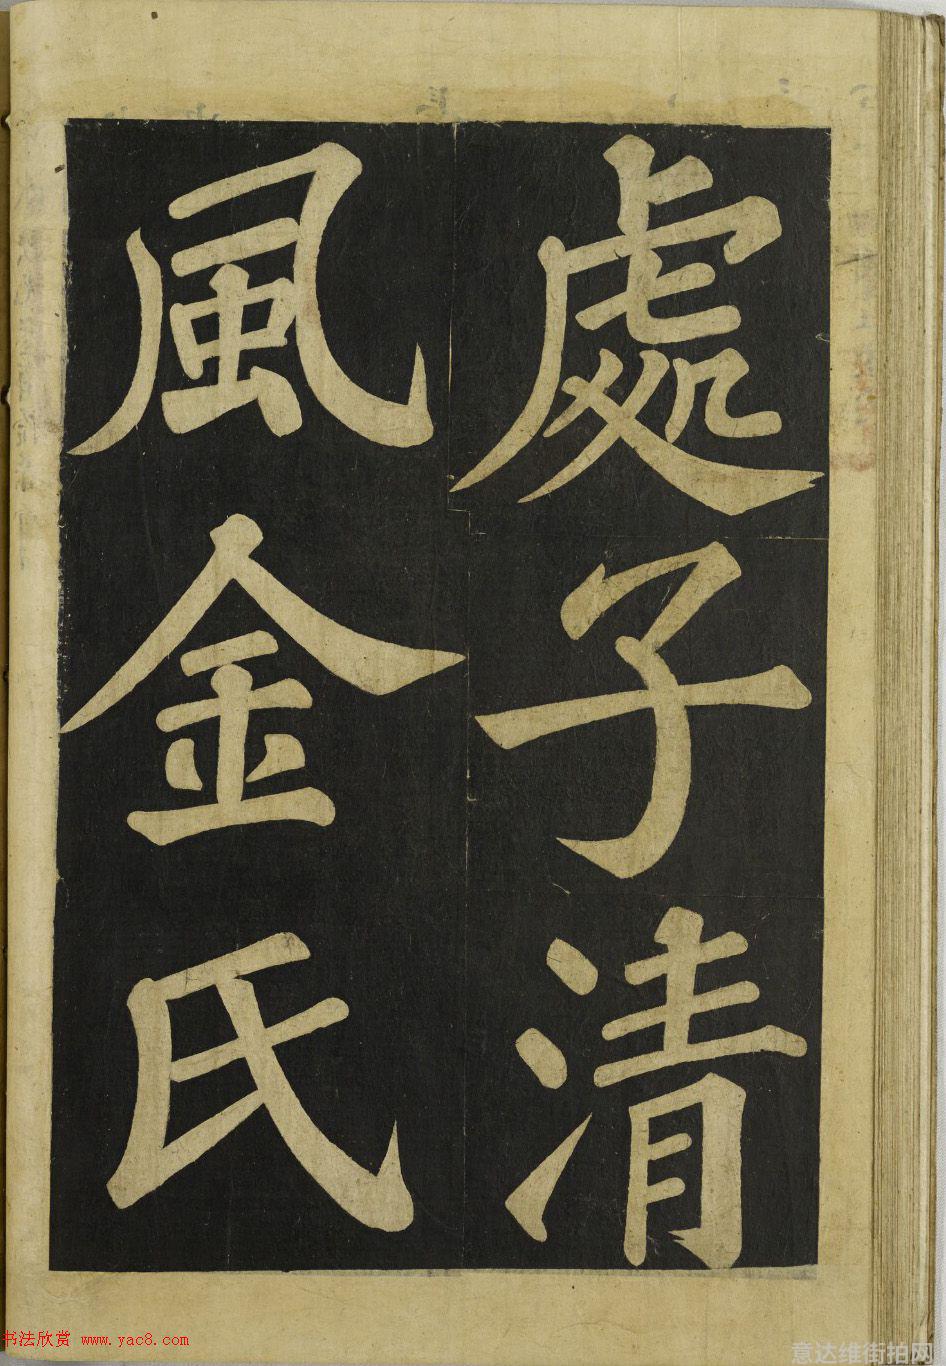 處子清
風金氏
书法欣赏 www.yac8.com
意达维街拍网